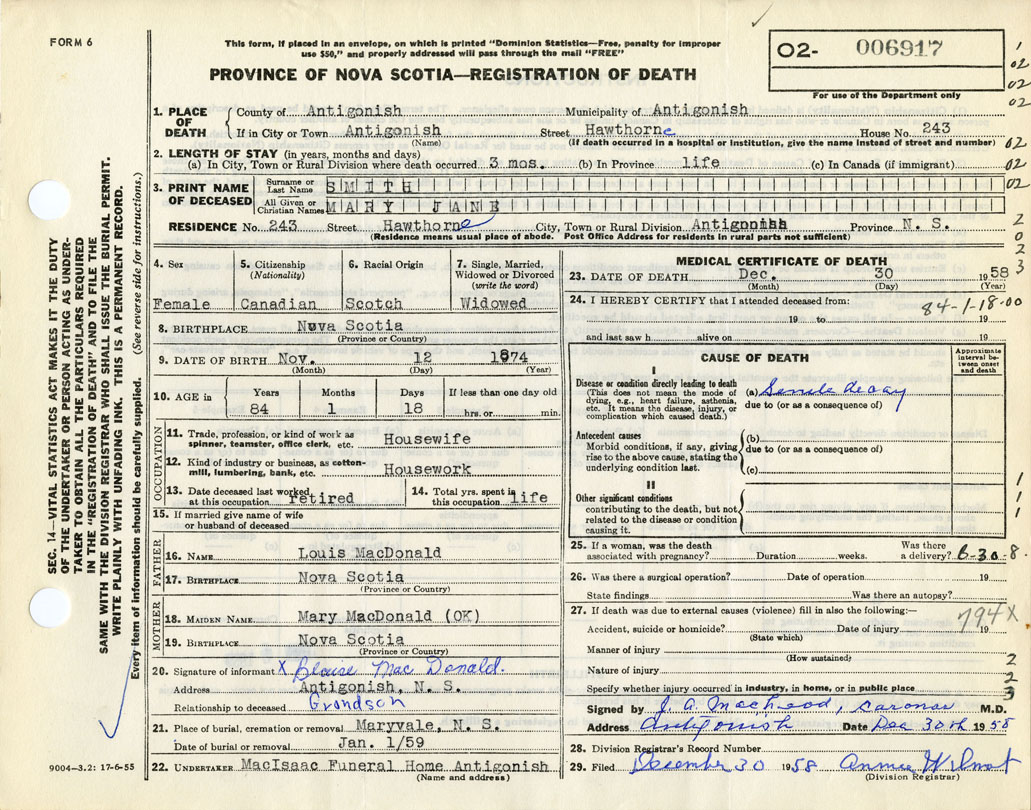 FORM 6
This form, if placed in an envelope, on which is printed "Dominion Statistics—Free, penalty for improper
use $50," and properly addressed will pass through the mail "FREE"
PROVINCE OF NOVA SCOTIA—REGISTRATION OF DEATH
02- 006917
For use of the Department only
1. PLACE OF DEATH
County of Antigonish Municipality of Antigonish
If in City or Town Antigonish Street Hawthorne House No. 243
(Name) (If death occurred in a hospital or institution, give the name instead of street and number)
2. LENGTH OF STAY (in years, months and days)
(a) In City, Town or Rural Division where death occurred 3 mos. (b) In Province life (c) In Canada (if immigrant)
3. PRINT NAME OF DECEASED
Surname or Last Name SMITH
All Given or Christian Names MARY JANE
RESIDENCE No. 243 Street Hawthorne City, Town or Rural Division Antigonish Province N. S.
(Residence means usual place of abode. Post Office Address for residents in rural parts not sufficient)
4. Sex Female
5. Citizenship (Nationality) Canadian
6. Racial Origin Scotch
7. Single, Married, Widowed or Divorced (write the word) Widowed
8. BIRTHPLACE Nova Scotia
(Province or Country)
9. DATE OF BIRTH Nov. 12 1874
(Month) (Day) (Year)
10. AGE in Years 84 Months 1 Days 18 If less than one day old hrs. or min.
OCCUPATION
11. Trade, profession, or kind of work as spinner, teamster, office clerk, etc. Housewife
12. Kind of industry or business, as cotton-mill, lumbering, bank, etc. Housework
13. Date deceased last worked at this occupation retired
14. Total yrs. spent in this occupation life
15. If married give name of wife or husband of deceased
FATHER
16. NAME Louis MacDonald
17. BIRTHPLACE Nova Scotia
(Province or Country)
MOTHER
18. MAIDEN NAME Mary MacDonald (OK)
19. BIRTHPLACE Nova Scotia
(Province or Country)
20. Signature of informant X Blaise MacDonald.
Address Antigonish, N. S.
Relationship to deceased Grandson
21. Place of burial, cremation or removal Maryvale, N. S.
Date of burial or removal Jan. 1/59
22. UNDERTAKER MacIsaac Funeral Home Antigonish
(Name and address)
MEDICAL CERTIFICATE OF DEATH
23. DATE OF DEATH Dec. 30 1958
(Month) (Day) (Year)
24. I HEREBY CERTIFY that I attended deceased from:
84-1-18.00
19 to 19
and last saw h alive on 19
CAUSE OF DEATH
Approximate interval between onset and death
I
Disease or condition directly leading to death
(This does not mean the mode of dying, e.g., heart failure, asthenia, etc. It means the disease, injury, or complication which caused death.)
(a) Senile decay
due to (or as a consequence of)
Antecedent causes
Morbid conditions, if any, giving rise to the above cause, stating the underlying condition last.
(b)
due to (or as a consequence of)
(c)
II
Other significant conditions
contributing to the death, but not related to the disease or condition causing it.
25. If a woman, was the death associated with pregnancy? Duration weeks. Was there a delivery? 6-30-8.
26. Was there a surgical operation? Date of operation 19
State findings Was there an autopsy?
27. If death was due to external causes (violence) fill in also the following:—
794X
Accident, suicide or homicide? Date of injury 19
(State which)
Manner of injury
(How sustained)
Nature of injury
Specify whether injury occurred in industry, in home, or in public place
Signed by J. A. MacLeod, Coroner M.D.
Address Antigonish Date Dec 30th 1958
28. Division Registrar's Record Number
29. Filed December 30 1958 Annie Wilmot
(Division Registrar)
SEC. 14—VITAL STATISTICS ACT MAKES IT THE DUTY
OF THE UNDERTAKER OR PERSON ACTING AS UNDER-
TAKER TO OBTAIN ALL THE PARTICULARS REQUIRED
IN THE "REGISTRATION OF DEATH" AND TO FILE THE
SAME WITH THE DIVISION REGISTRAR WHO SHALL ISSUE THE BURIAL PERMIT.
WRITE PLAINLY WITH UNFADING INK. THIS IS A PERMANENT RECORD.
Every item of information should be carefully supplied. (See reverse side for instructions.)
9004—3.2: 17-6-55
1
02
02
02
02
02
02
2
0
2
3
1
1
1
2
2
3